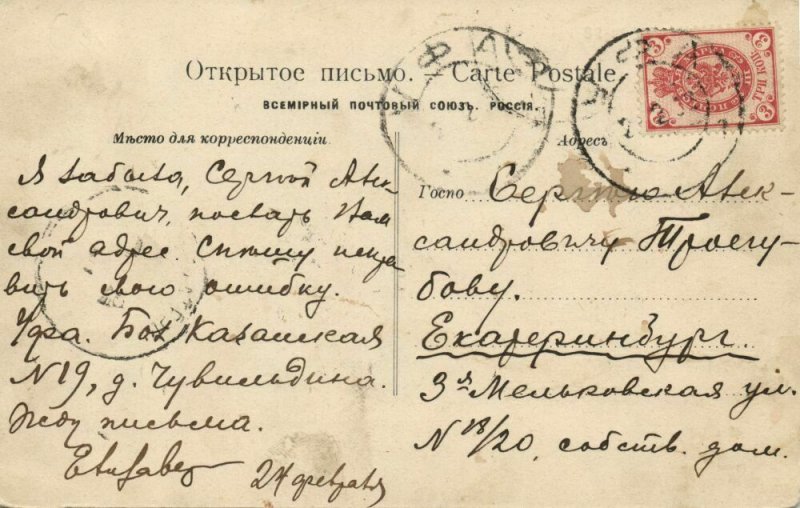 Открытое письмо. — Carte Postale
ВСЕМІРНЫЙ ПОЧТОВЫЙ СОЮЗЪ. РОССІЯ.
Мѣсто для корреспонденціи
Я забыла, Сергей Алек-
сандрович, послать Вам
свой адрес. Спешу испра-
вить свою ошибку.
Уфа. Бол. Казанская
N 19, д. Чувильдина.
Жду письма.
24 февраля
Адресъ
Госпо Сергею Алек-
сандровичу Трегу-
бову.
Екатеринбург
3я Мельковская ул.
N 18/20, собств. дом.
3 МАРКА 3
3 КОП. 3